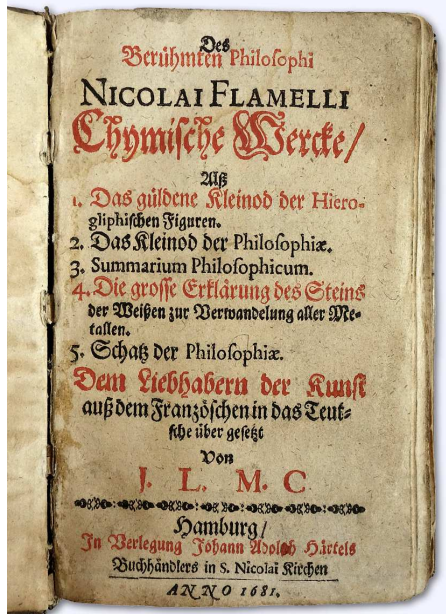 Des
Berühmten Philosophi
NICOLAI FLAMELLI
Chymische Wercke/
Alß
1. Das güldene Kleinod der Hiero-
gliphischen Figuren.
2. Das Kleinod der Philosophiæ.
3. Summarium Philosophicum.
4. Die grosse Erklärung des Steins
der Weißen zur Verwandelung aller Me-
tallen.
5. Schatz der Philosophiæ.
Dem Liebhabern der Kunst
auß dem Französchen in das Teut-
sche über gesetzt
Von
J. L. M. C
Hamburg/
In Verlegung Johann Adolph Härtels
Buchhändlers in S. Nicolai Kirchen
ANNO 1681.